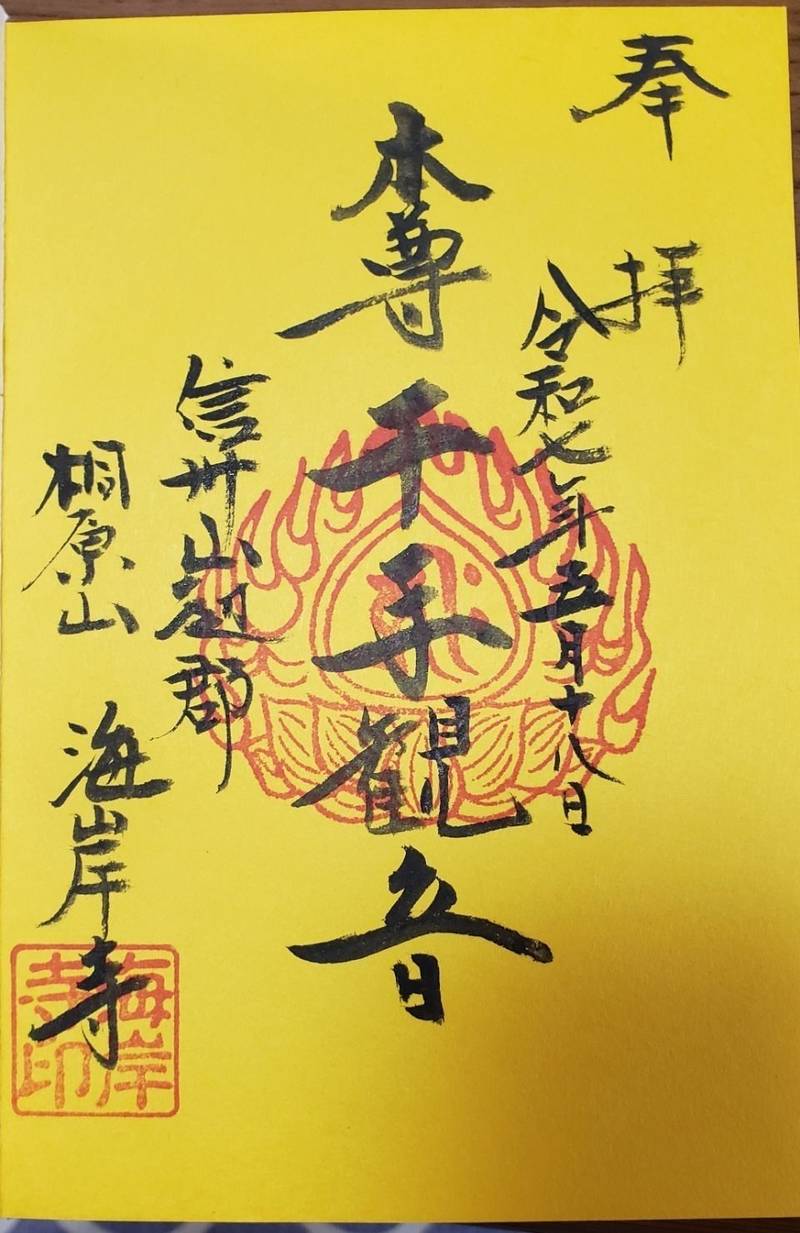 奉拝
令和七年五月十八日
本尊千手観音
信州山辺郡
桐原山
海岸寺
海岸
寺印